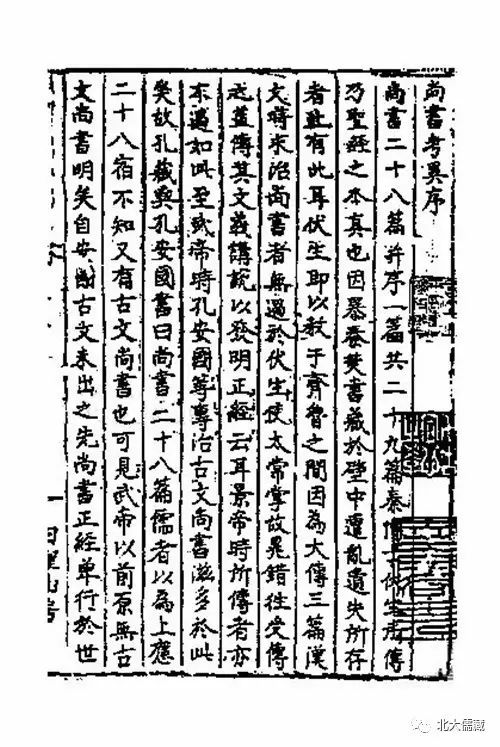 尚書考異序
尚書二十八篇并序一篇共二十九篇秦博士伏生所傳
乃聖經之本真也因暴秦焚書藏於壁中遭亂遺失所存
者止有此耳伏生即以教于齊魯之間因為大傳三篇漢
文時求治尚書者無過於伏生使太常掌故晁錯往受傳
之蓋傳其文義講說以發明正經云耳景帝時所傳者亦
不過如此至武帝時孔安國等專治古文尚書滋多於此
矣故孔藏與孔安國書曰尚書二十八篇儒者以為上應
二十八宿不知又有古文尚書也可見武帝以前原無古
文尚書明矣自安國古文未出之先尚書正經單行於世
一
北大儒藏